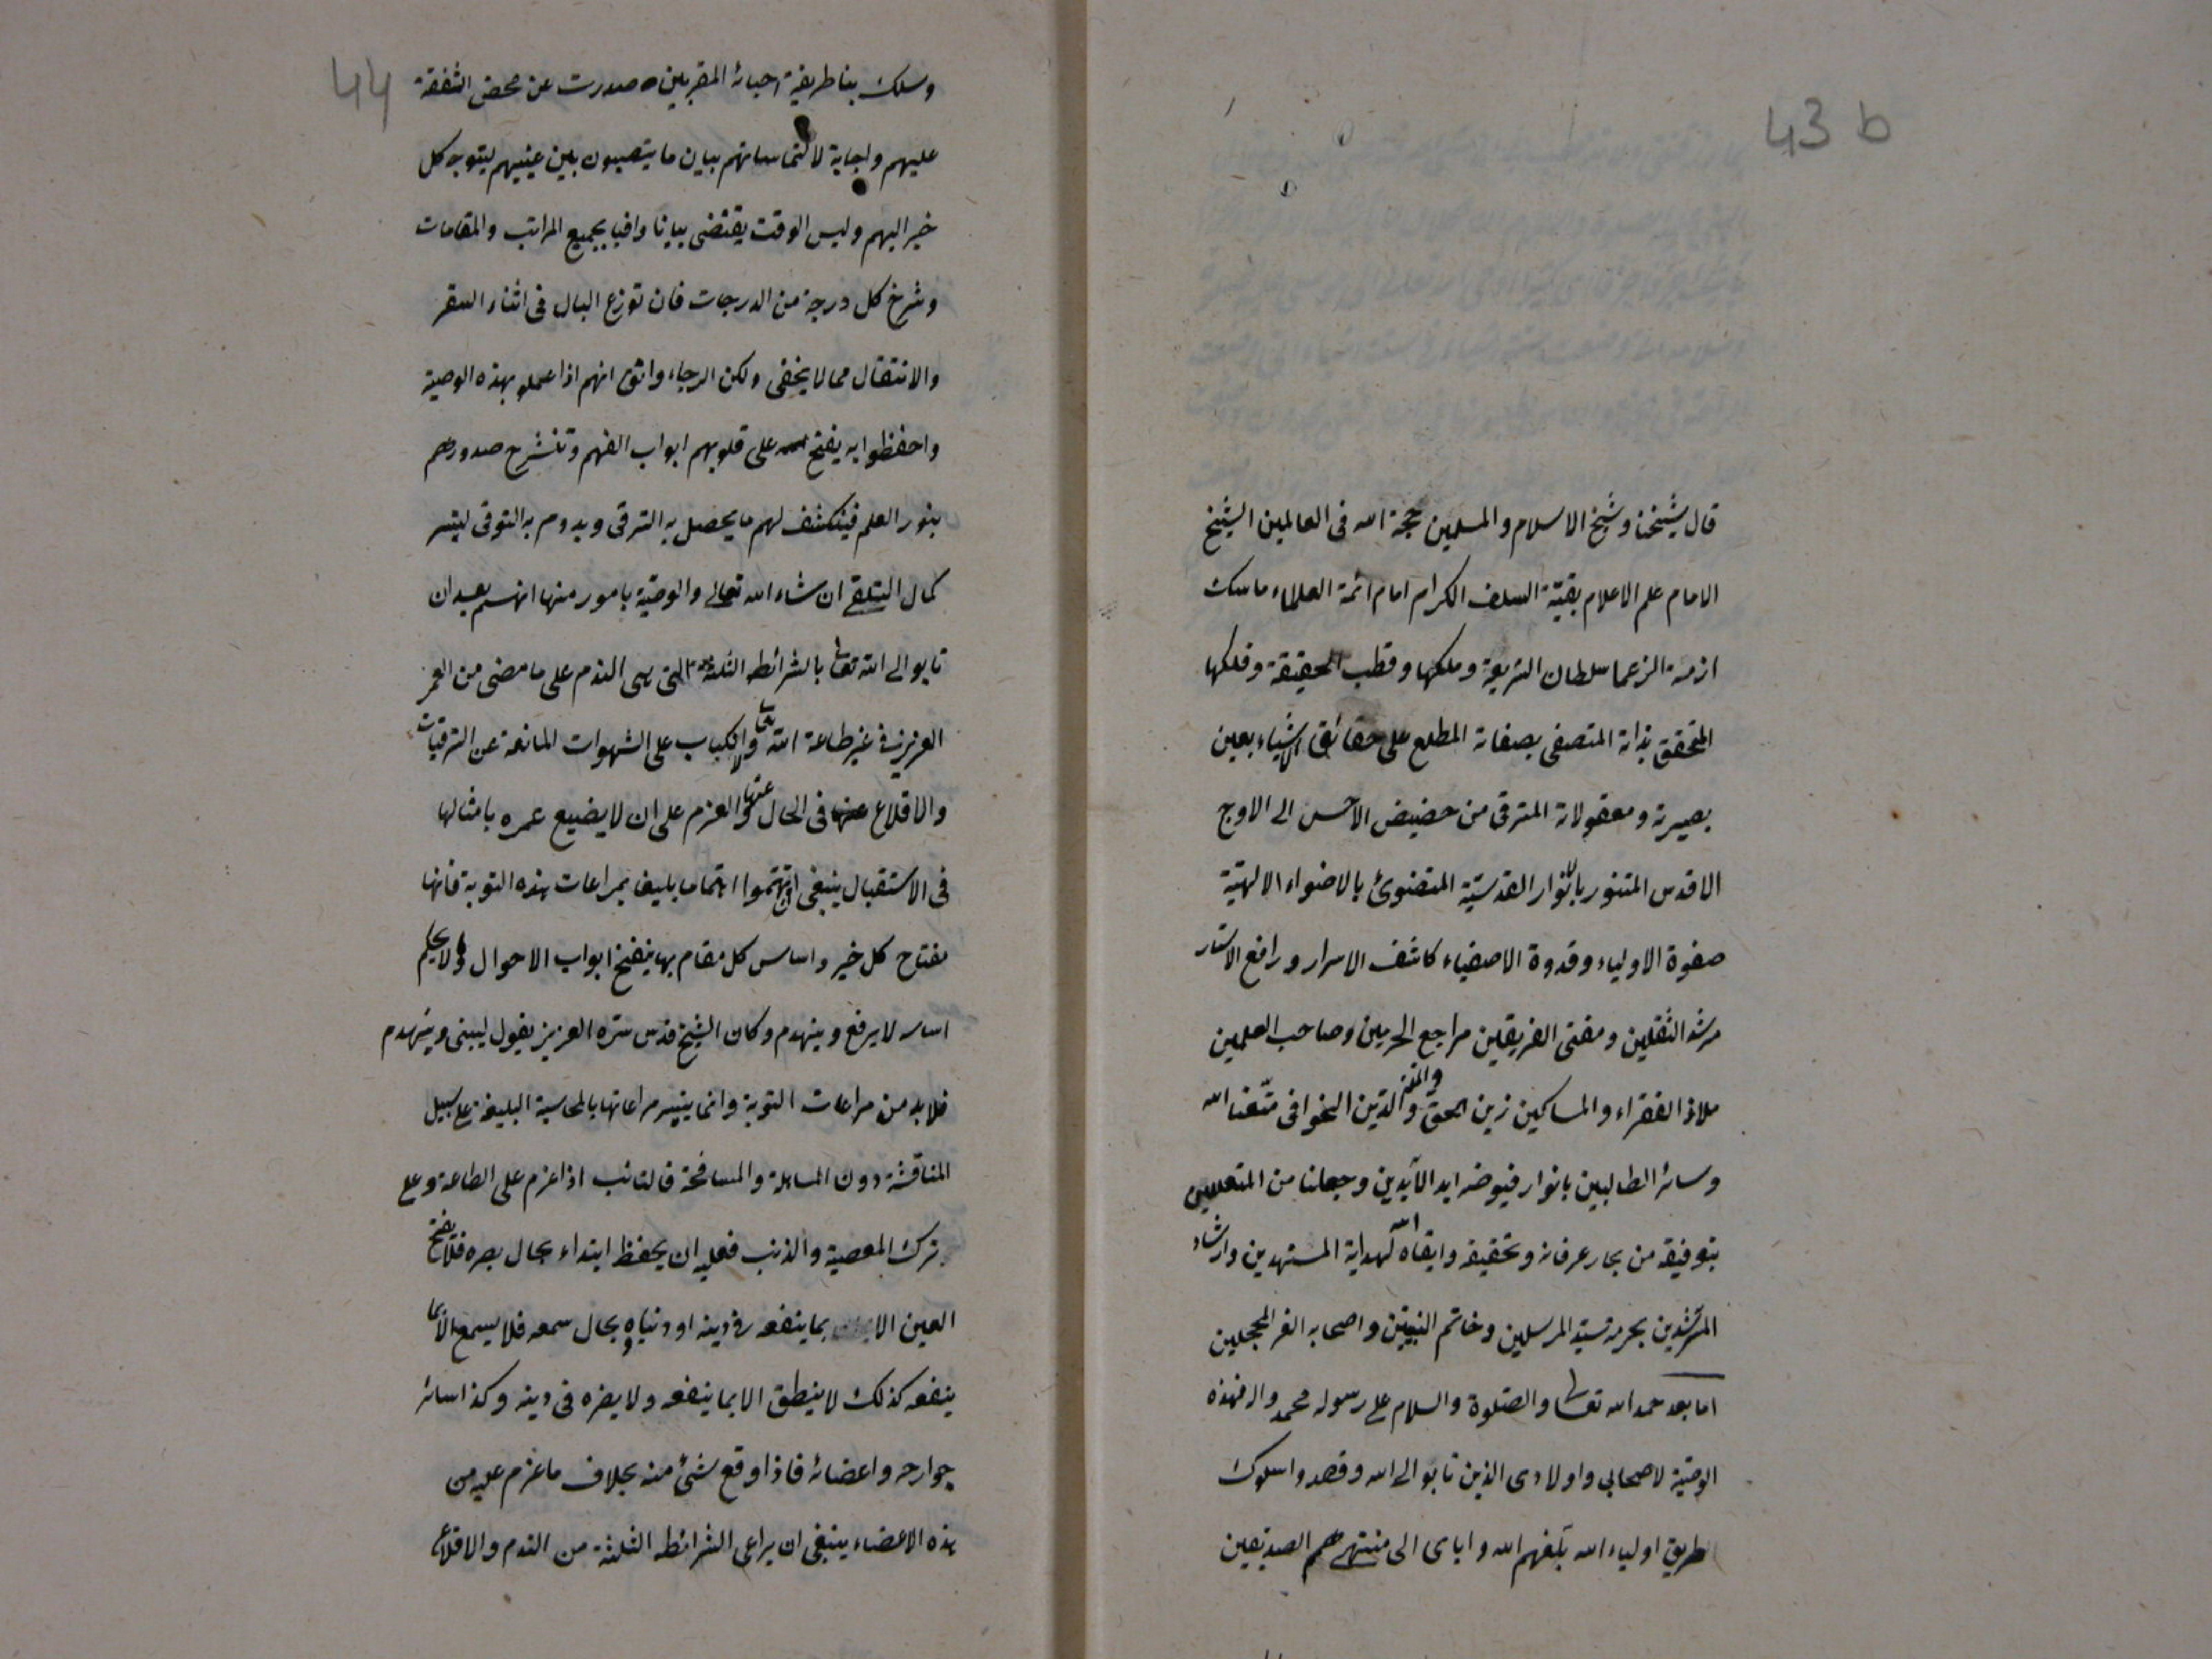 43 b
قال شيخنا وشيخ الاسلام والمسلمين حجة الله فى العالمين الشيخ
الامام علم الاعلام بقيّة السلف الكرام امام ائمة العلماء ماسك
ازمة الزعما سلطان الشريعة وملكها وقطب الحقيقة وفلكها
المتحقق بذاته المتصفى بصفاته المطلع على حقائق الاشياء بعين
بصيرته ومعقولاته المترقى من حضيض الاخس الى الاوج
الاقدس المتنور بالانوار القدسيّة المتضوئ بالاضواء الالهيّة
صفوة الاولياء وقدوة الاصفياء كاشف الاسرار ورافع الاستار
مرشد الثقلين ومفتى الفريقين مراجع الحرمين وصاحب العلمين
ملاذ الفقراء والمساكين زين الحق والملة والدّين الخوافى متّعنا الله
وسائر الطالبين بانوار فيوضه ابد الآبدين وجعلنا من المتعلمين
بتوفيقه من بحار عرفانه وتحقيقه وابقاه الله لهداية المستهدين وارشاد
المسترشدين بحرمة سيّد المرسلين وخاتم النبيّين واصحابه الغر المحجلين
اما بعد حمد الله تعالى والصّلوة والسلام على رسوله محمد واله فهذه
الوصيّة لاصحابى واولادى الذين تابوا الى الله وقصدوا سلوك
طريق اولياء الله بلّغهم الله واياى الى منتهى همم الصديقين
44
وسلك بنا طريقة احبائه المقربين صدرت عن محض الشفقة
عليهم واجابة لالتماساتهم ببيان ما ينصبون بين عينيهم ليتوجه كل
خير اليهم وليس الوقت يقتضى بيانا وافيا بجميع المراتب والمقامات
وشرح كل درجة من الدرجات فان توزع البال فى اثناء السفر
والانتقال مما لا يخفى ولكن الرجاء واثق انهم اذا عملو بهذه الوصية
واحفظوا به يفتح الله على قلوبهم ابواب الفهم وتنشرح صدورهم
بنور العلم فينكشف لهم ما يحصل به الترقى ويدوم به التوقى ليتسر
كمال التلقى ان شاء الله تعالى والوصيّة بامور منها انهم بعد ان
تابوا الى الله تعالى بالشرائط الثلثة التى هى الندم على ما مضى من العمر
العزيز فى غير طاعة الله تعالى والاكباب على الشهوات المانعة عن الترقيات
والاقلاع عنها فى الحال عنها والعزم على ان لا يضيع عمره بامثالها
فى الاستقبال ينبغى ان يهتموا اهتماما بليغا بمراعات هذه التوبة فانها
مفتاح كل خير واساس كل مقام بها ينفتح ابواب الاحوال ولا يحكم
اساس لا يرفع وينهدم وكان الشيخ قدس سرّه العزيز يقول ليبنى وينهدم
فلا بد من مراعات التوبة وانما يتيسر مراعاتها بالمحاسبة البليغة على سبيل
المناقشة دون المساهلة والمسامحة فالتائب اذا عزم على الطاعة وعلى
ترك المعصية والذنب فعليه ان يحفظ ابتداء بحال بصره فلا يفتح
العين الا بما ينفعه فى دينه او دنياه وبحال سمعه فلا يسمع الا بما
ينفعه كذلك لا ينطق الا بما ينفعه ولا يضره فى دينه وكذا سائر
جوارحه واعضائه فاذا وقع شئ منه بخلاف ما عزم عليه من
هذه الاعضاء ينبغى ان يراعى الشرائط الثلثة من الندم والاقلاع